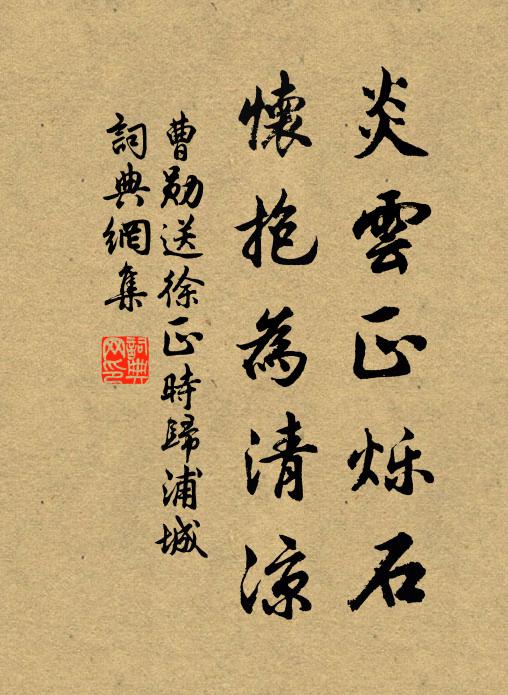 炎雲正烁石
懷抱為清涼
曹勛送徐正時歸浦城
詞典網集
詞典网印